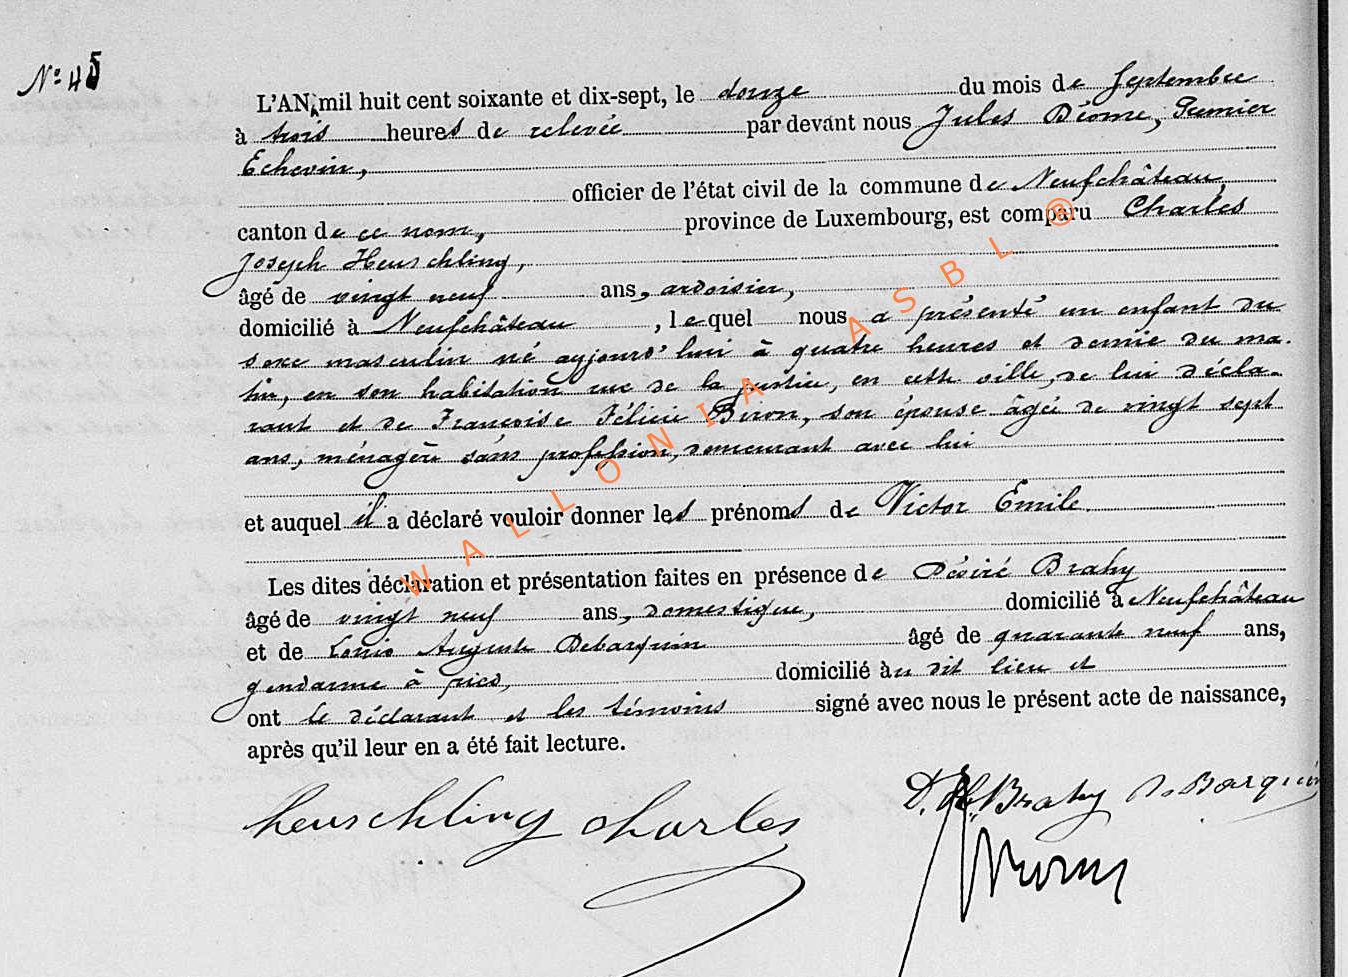 Nº 45
L'AN mil huit cent soixante et dix-sept, le douze du mois de Septembre
à trois heures de relevée par devant nous Jules Déome, Premier
Echevin,
officier de l'état civil de la commune de Neufchâteau,
canton de ce nom, province de Luxembourg, est comparu Charles
Joseph Heuschling,
âgé de vingt neuf ans, ardoisier,
domicilié à Neufchâteau, lequel nous a présenté un enfant du
sexe masculin né aujourd'hui à quatre heures et demie du ma-
tin, en son habitation rue de la justice, en cette ville, de lui décla-
rant et de Françoise Félicie Biron, son épouse âgée de vingt sept
ans, ménagère sans profession, demeurant avec lui
et auquel il a déclaré vouloir donner les prénoms de Victor Emile.
Les dites déclaration et présentation faites en présence de Désiré Brahy
âgé de vingt neuf ans, domestique, domicilié à Neufchâteau
et de Louis Auguste Debarquin âgé de quarante neuf ans,
gendarme à pied, domicilié au dit lieu et
ont le déclarant et les témoins signé avec nous le présent acte de naissance,
après qu'il leur en a été fait lecture.
heuschling charles D. Brahy
WALLONIA ASBL ®